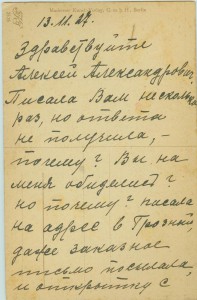 13.11.27.
Здравствуйте
Алексей Александрович.
Писала Вам несколько
раз, но ответа
не получила, –
почему? Вы на
меня обиделись?
но почему? писала
на адрес в Грозный,
даже заказное
письмо посылала,
и открытку с